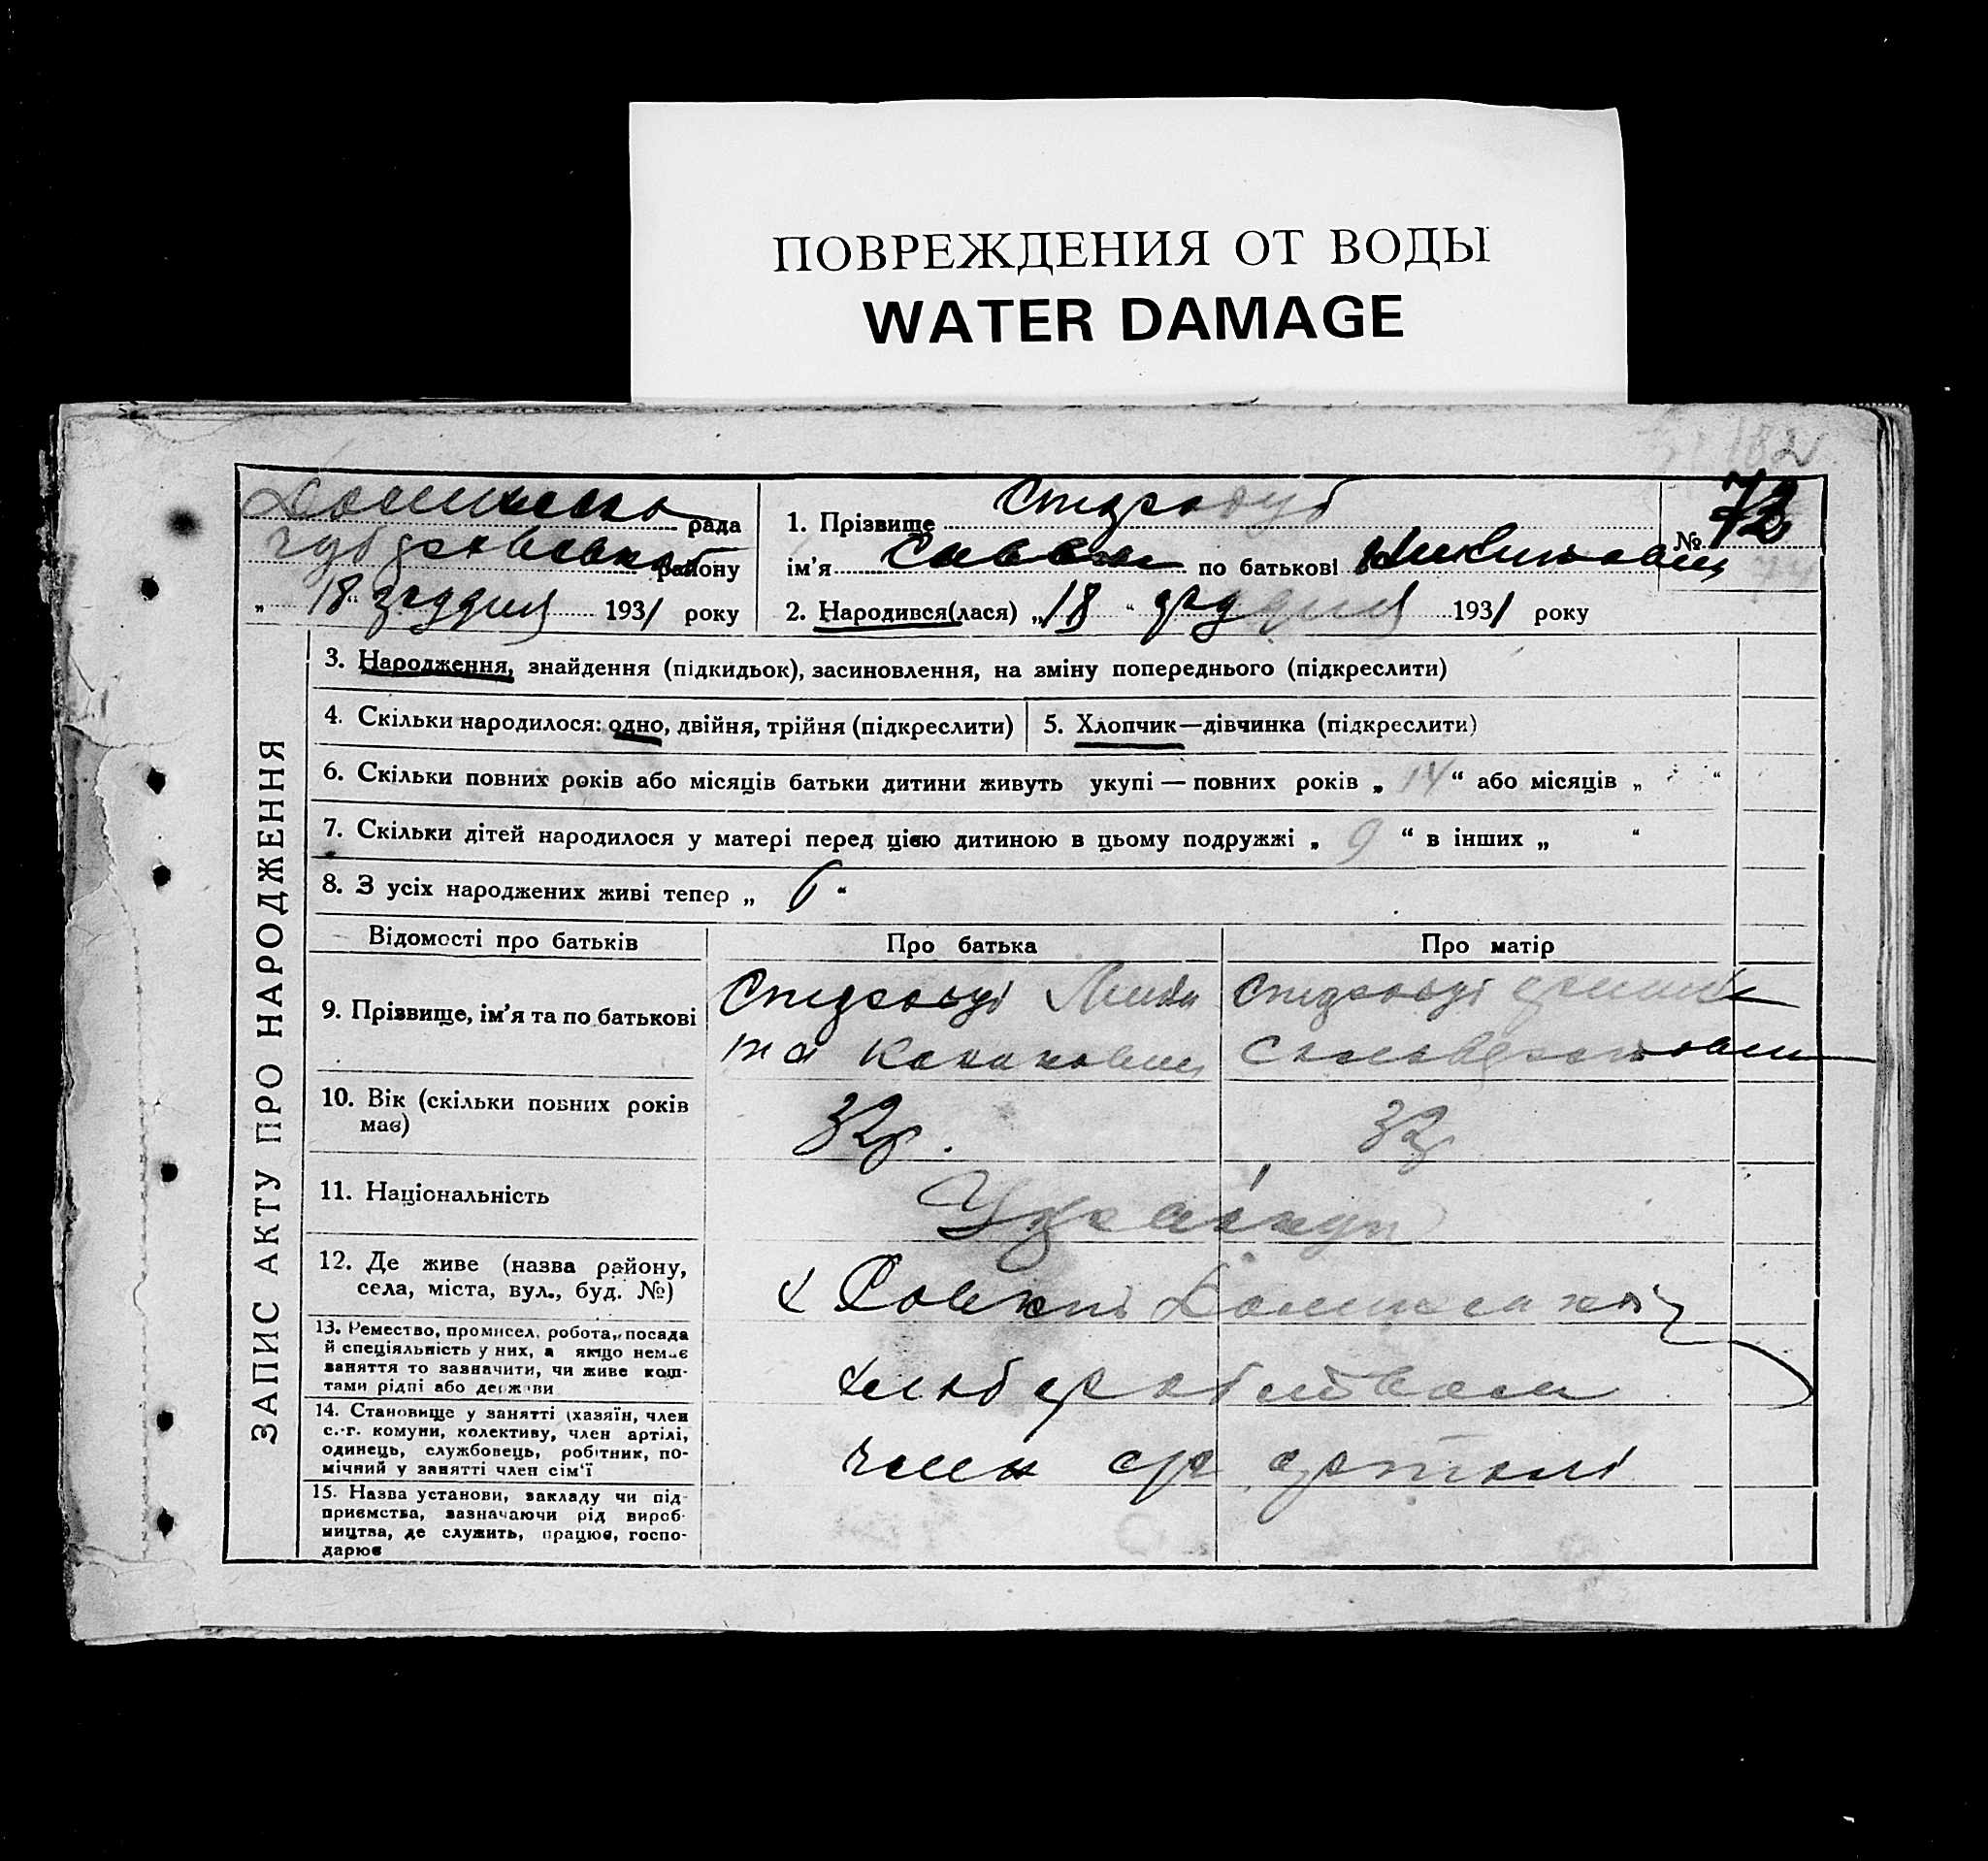 ПОВРЕЖДЕНИЯ ОТ ВОДЫ
WATER DAMAGE
182
рада
району
„ 18 " грудня 1931 року
1. Прізвище Стародуб
ім'я Савва по батькові Никитович
№ 72
2. Народився(лася) „ 18 " грудня 1931 року
ЗАПИС АКТУ ПРО НАРОДЖЕННЯ
3. Народження, знайдення (підкидьок), засиновлення, на зміну попереднього (підкреслити)
4. Скільки народилося: одно, двійня, трійня (підкреслити)
5. Хлопчик—дівчинка (підкреслити)
6. Скільки повних років або місяців батьки дитини живуть укупі — повних років „ 14 “ або місяців „ “
7. Скільки дітей народилося у матері перед цією дитиною в цьому подружжі „ 9 “ в інших „ “
8. З усіх народжених живі тепер „ 6 “
Відомості про батьків
Про батька
Про матір
9. Прізвище, ім'я та по батькові
Стародуб
Стародуб
10. Вік (скільки повних років
має)
32р.
32р
11. Національність
12. Де живе (назва району,
села, міста, вул., буд. №)
13. Ремество, промисел, робота, посада
й спеціяльність у них, а якщо немає
заняття то зазначити, чи живе кош-
тами рідні або держави
хлебороб
14. Становище у занятті (хазяїн, член
с.-г. комуни, колективу, член артілі,
одинець, службовець, робітник, по-
мічний у занятті член сім'ї
член артілі
15. Назва установи, закладу чи під-
приємства, зазначаючи рід вироб-
ництва, де служить, працює, госпо-
дарює